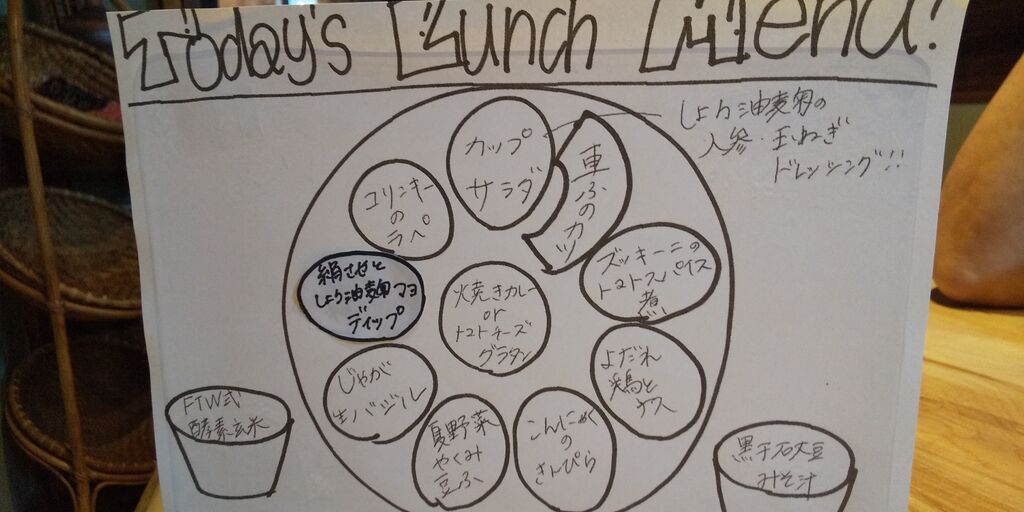 Today's Lunch Menu!
しょう油麹の
人参・玉ねぎ
ドレッシング!!
カップ
サラダ
車ふのカツ
コリンキー
の
ラペ
ズッキーニの
トマトスパイス
煮
絹さやと
しょう油麹マヨ
ディップ
火焼きカレー
or
トマトチーズ
グラタン
よだれ
鶏と
ナス
じゃが
生バジル
夏野菜
やくみ
豆ふ
こんにゃく
の
きんぴら
FTW式
酵素玄米
黒千石大豆
みそ汁